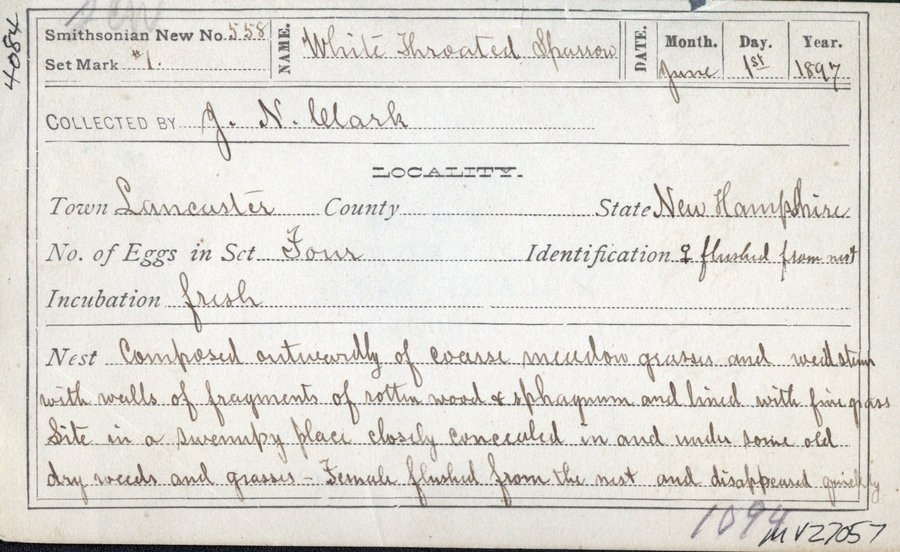 4084
Smithsonian New No. 558
Set Mark #1.
NAME. White Throated Sparrow
DATE. Month. June Day. 1st Year. 1897
COLLECTED BY J. N. Clark
LOCALITY.
Town Lancaster County State New Hampshire
No. of Eggs in Set Four Identification ♀ flushed from nest
Incubation fresh
Nest Composed outwardly of coarse meadow grasses and weed stems
with walls of fragments of rotten wood & sphagnum and lined with fine grass
Site in a swampy place closely concealed in and under some old
dry weeds and grasses – Female flushed from the nest and disappeared quickly
1094
MVZ7057